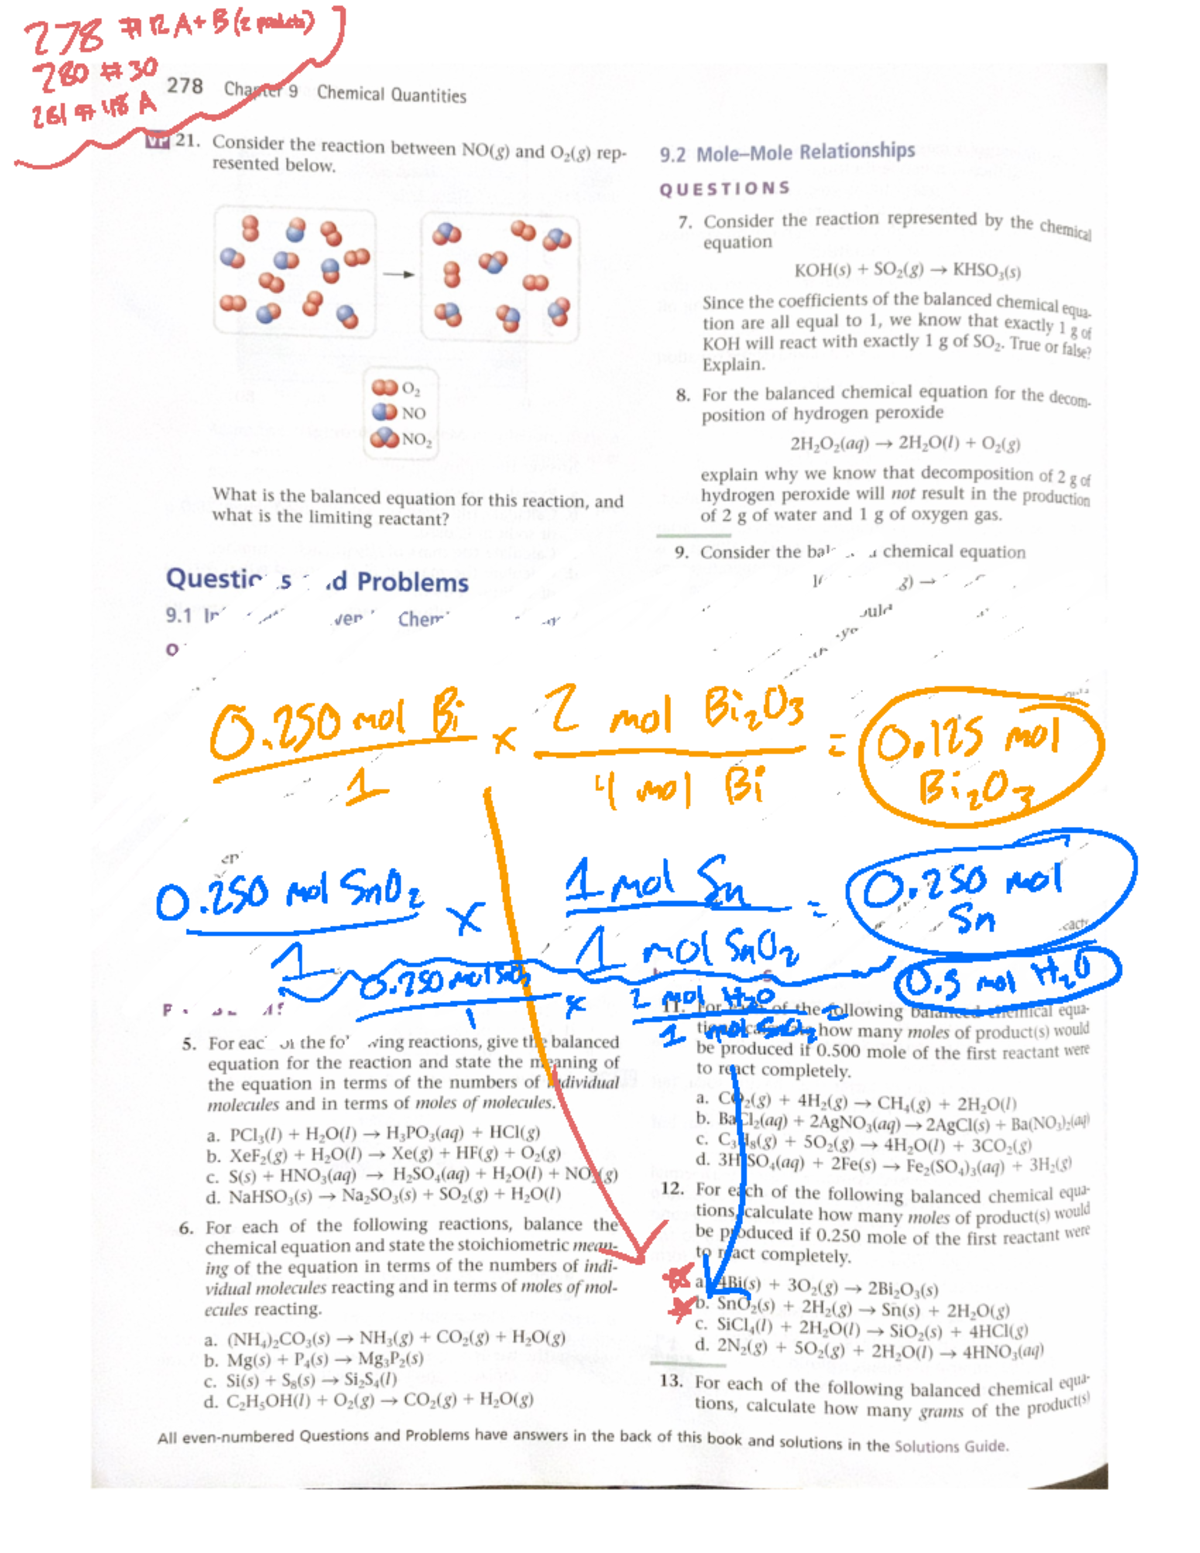 278 #12 A+B (2 products)
280 #30
281 #48 A
278 Chapter 9 Chemical Quantities
VP 21. Consider the reaction between NO(g) and O₂(g) rep-
resented below.
O₂
NO
NO₂
What is the balanced equation for this reaction, and
what is the limiting reactant?
Questions and Problems
9.1
9.2 Mole–Mole Relationships
QUESTIONS
7. Consider the reaction represented by the chemical
equation
KOH(s) + SO₂(g) → KHSO₃(s)
Since the coefficients of the balanced chemical equa-
tion are all equal to 1, we know that exactly 1 g of
KOH will react with exactly 1 g of SO₂. True or false?
Explain.
8. For the balanced chemical equation for the decom-
position of hydrogen peroxide
2H₂O₂(aq) → 2H₂O(l) + O₂(g)
explain why we know that decomposition of 2 g of
hydrogen peroxide will not result in the production
of 2 g of water and 1 g of oxygen gas.
9. Consider the chemical equation
0.250 mol Bi × 2 mol Bi₂O₃ = 0.125 mol
1 4 mol Bi Bi₂O₃
0.250 mol SnO₂ × 1 mol Sn = 0.250 mol
1 1 mol SnO₂ Sn
0.250 mol SnO₂ × 2 mol H₂O = 0.5 mol H₂O
1 1 mol SnO₂
5. For each of the following reactions, give the balanced
equation for the reaction and state the meaning of
the equation in terms of the numbers of individual
molecules and in terms of moles of molecules.
a. PCl₃(l) + H₂O(l) → H₃PO₃(aq) + HCl(g)
b. XeF₂(g) + H₂O(l) → Xe(g) + HF(g) + O₂(g)
c. S(s) + HNO₃(aq) → H₂SO₄(aq) + H₂O(l) + NO (g)
d. NaHSO₃(s) → Na₂SO₃(s) + SO₂(g) + H₂O(l)
6. For each of the following reactions, balance the
chemical equation and state the stoichiometric mean-
ing of the equation in terms of the numbers of indi-
vidual molecules reacting and in terms of moles of mol-
ecules reacting.
a. (NH₄)₂CO₃(s) → NH₃(g) + CO₂(g) + H₂O(g)
b. Mg(s) + P₄(s) → Mg₃P₂(s)
c. Si(s) + S₈(s) → Si₂S₄(l)
d. C₂H₅OH(l) + O₂(g) → CO₂(g) + H₂O(g)
11. For each of the following balanced chemical equa-
tions, calculate how many moles of product(s) would
be produced if 0.500 mole of the first reactant were
to react completely.
a. CO₂(g) + 4H₂(g) → CH₄(g) + 2H₂O(l)
b. BaCl₂(aq) + 2AgNO₃(aq) → 2AgCl(s) + Ba(NO₃)₂(aq)
c. C₃H₈(g) + 5O₂(g) → 4H₂O(l) + 3CO₂(g)
d. 3H₂SO₄(aq) + 2Fe(s) → Fe₂(SO₄)₃(aq) + 3H₂(g)
12. For each of the following balanced chemical equa-
tions, calculate how many moles of product(s) would
be produced if 0.250 mole of the first reactant were
to react completely.
a. 4Bi(s) + 3O₂(g) → 2Bi₂O₃(s)
b. SnO₂(s) + 2H₂(g) → Sn(s) + 2H₂O(g)
c. SiCl₄(l) + 2H₂O(l) → SiO₂(s) + 4HCl(g)
d. 2N₂(g) + 5O₂(g) + 2H₂O(l) → 4HNO₃(aq)
13. For each of the following balanced chemical equa-
tions, calculate how many grams of the product(s)
All even-numbered Questions and Problems have answers in the back of this book and solutions in the Solutions Guide.